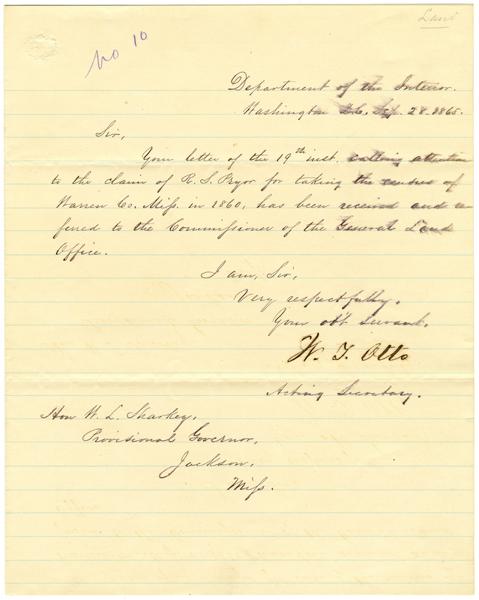 Land
No 10
Department of the Interior.
Washington D.C. Sep. 28. 1865.
Sir,
Your letter of the 19th inst. calling attention
to the claim of R. S. Pryor for taking the census of
Warren Co. Miss. in 1860, has been received and re
ferred to the Commissioner of the General Land
Office.
I am, Sir,
Very respectfully,
Your obt servant,
W. T. Otto
Acting Secretary.
Hon W. L. Sharkey,
Provisional Governor,
Jackson,
Miss.